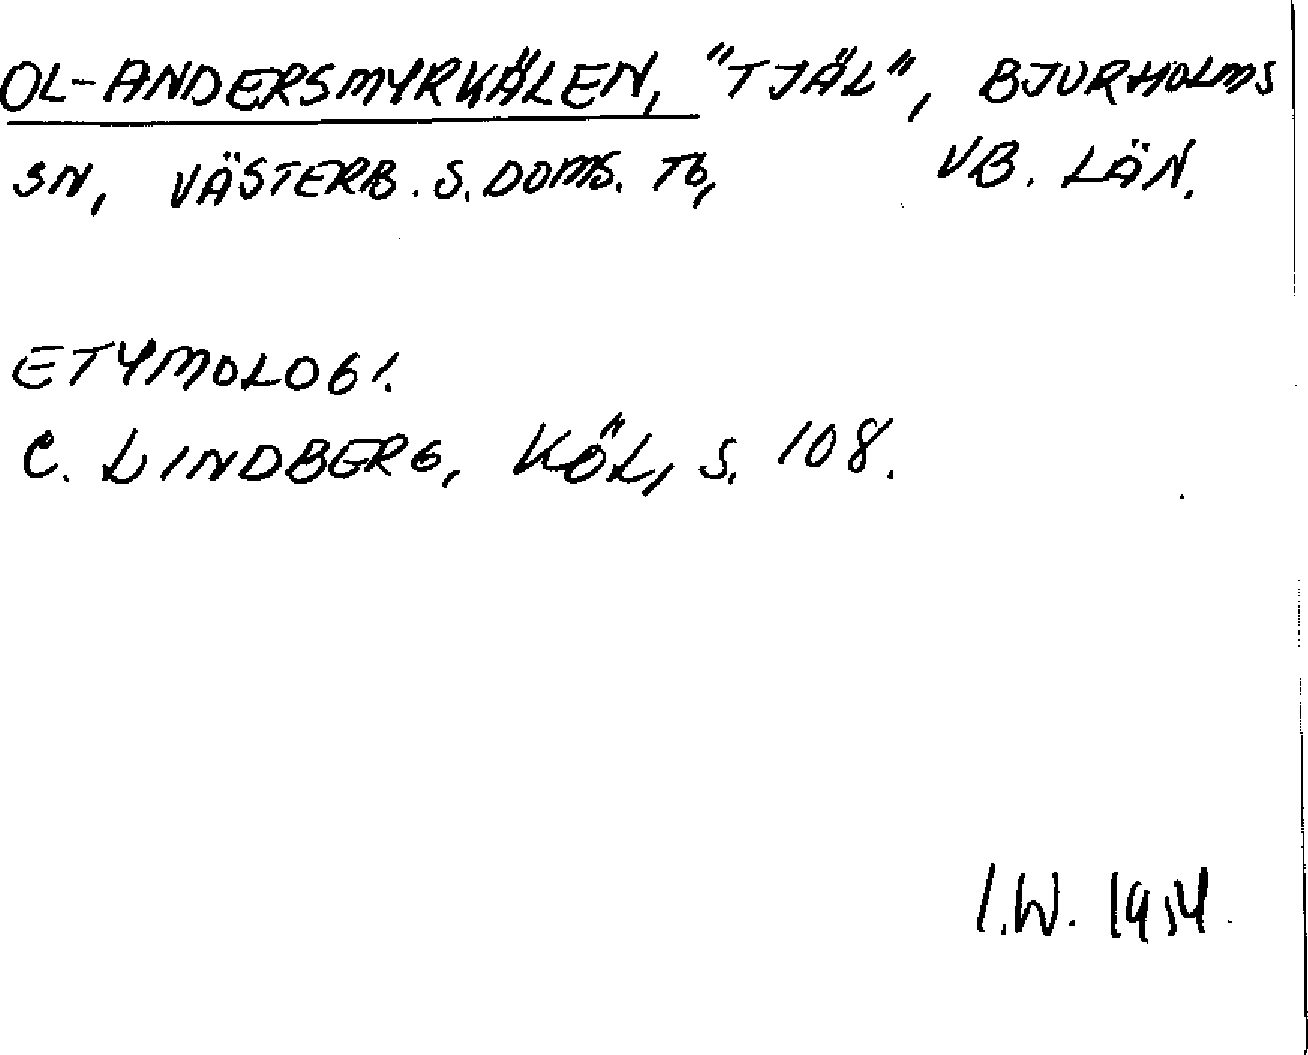 OL-ANDERSMYRKÄLEN, "TJÄL", BJURHOLMS
SN, VÄSTERB. S. DOMS. TG, VB. LÄN.
ETYMOLOGI.
C. LINDBERG, KÖL, S. 108.
I.W. 1954.